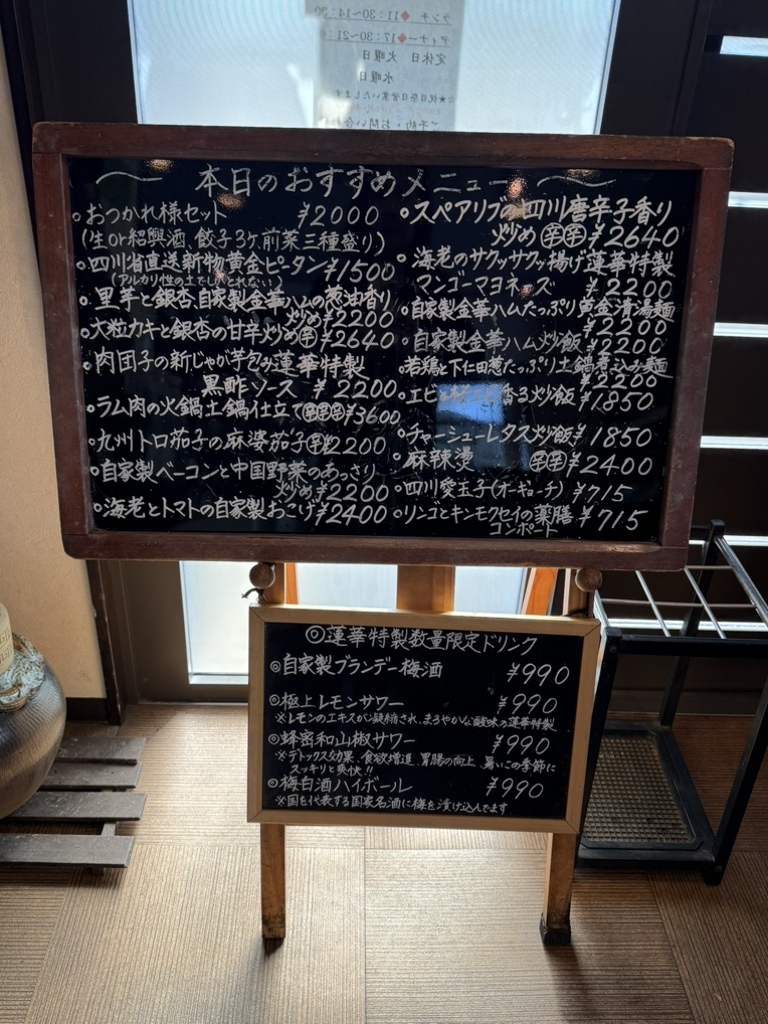 ランチ ◆11:30~14:30
ディナー◆17:30~21:
定休日 火曜日
水曜日
☆★祝日祭日営業いたします
ご予約・お問い合わ
本日のおすすめメニュー
・おつかれ様セット ¥2000
(生or紹興酒、餃子3ヶ前菜三種盛り)
・四川省直送新物黄金ピータン¥1500
(アルカリ性の土でしかとれない)
・里芋と銀杏自家製金華ハムの葱油香り
炒め¥2200
・大粒カキと銀杏の甘辛炒め㊛¥2640
・肉団子の新じゃが芋包み蓮華特製
黒酢ソース ¥2200
・ラム肉の火鍋土鍋仕立て辛辛辛¥3600
・九州トロ茄子の麻婆茄子辛¥2200
・自家製ベーコンと中国野菜のあっさり
炒め¥2200
・海老とトマトの自家製おこげ¥2400
・スペアリブの四川唐辛子香り
炒め辛辛¥2640
・海老のサクッサクッ揚げ蓮華特製
マンゴーマヨネーズ ¥2200
・自家製金華ハムたっぷり黄金清湯麺
¥2200
・自家製金華ハム炒飯 ¥2200
・若鶏と下仁田葱たっぷり土鍋煮込み麺
¥2200
・エビと桜エビ香る炒飯 ¥1850
・チャーシューレタス炒飯¥1850
・麻辣燙 辛辛¥2400
・四川愛玉子(オーギョーチ)¥715
・リンゴとキンモクセイの薬膳 ¥715
コンポート
◎蓮華特製数量限定ドリンク
◎自家製ブランデー梅酒 ¥990
◎極上レモンサワー ¥990
※レモンのエキスが凝縮され、まろやかな酸味の蓮華特製
◎蜂蜜和山椒サワー ¥990
※デトックス効果、食欲増進、胃腸の向上、暑いこの季節に
スッキリと爽快!!
◎梅白酒ハイボール ¥990
※国を代表する国家名酒に梅を漬け込んでます